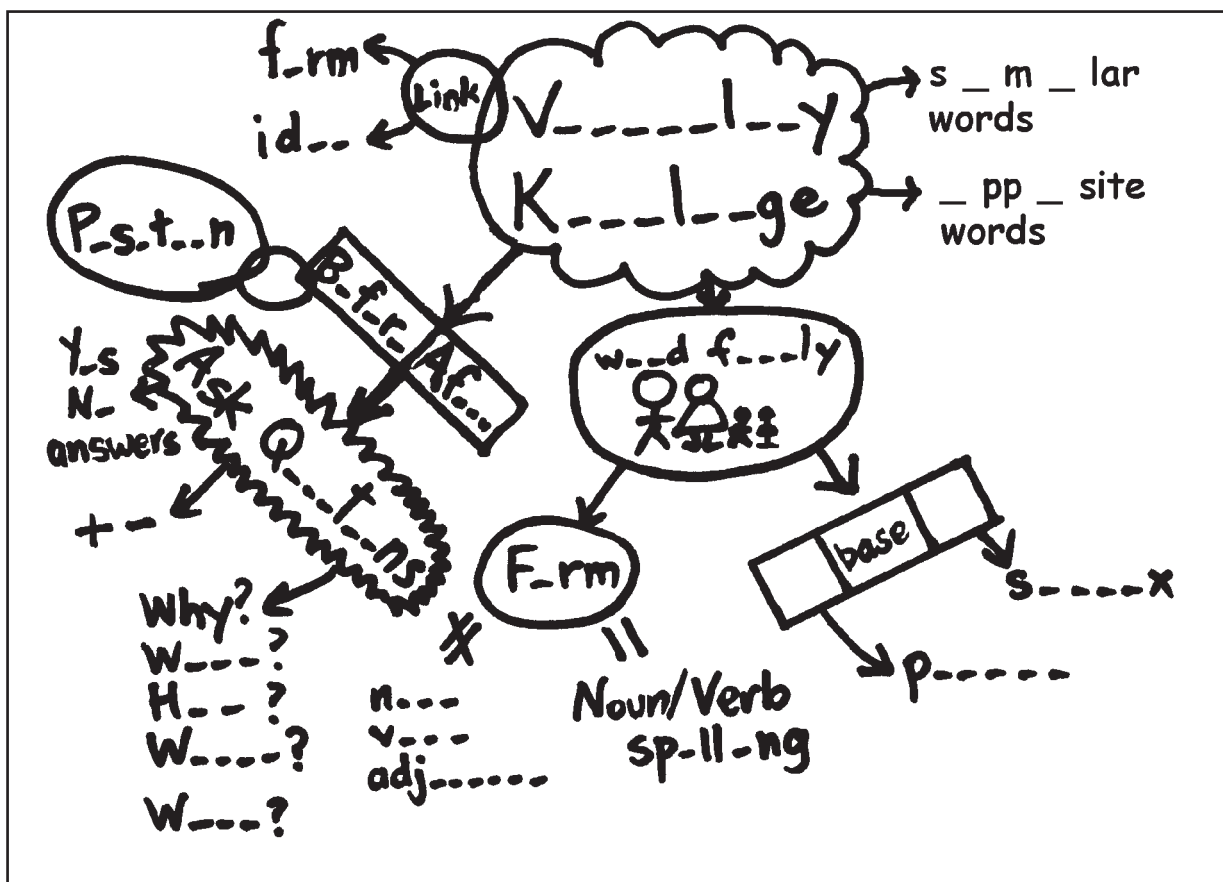 f_rm
id_ _
Link
V_ _ _ _ _l_ _y
K_ _ _l_ _ge
s _ m _ lar
words
_ pp _ site
words
P_s_t_ _n
B_f_r_ Af_ _ _
w_ _d f_ _ _ly
Y_s
N_
answers
Ask
Q_ _ _ _t_ _ns
+ -
Why?
W_ _ _?
H_ _ ?
W_ _ _ _?
W_ _ _?
F_rm
n_ _ _
v_ _ _
adj_ _ _ _ _ _
Noun/Verb
sp_ll_ng
base
s_ _ _ _ _x
p_ _ _ _ _